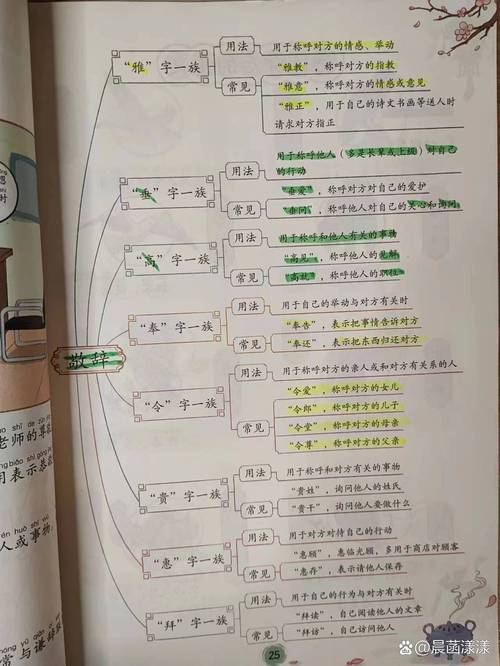 敬辞
“雅”字一族
用法
用于称呼对方的情感、举动
常见
“雅教”，称呼对方的指教
“雅意”，称呼对方的情感或意见
“雅正”，用于自己的诗文书画等送人时
请求对方指正
“垂”字一族
用法
用于称呼他人（多是长辈或上级）对自己
的行动
常见
“垂爱”，称呼对方对自己的爱护
“垂问”，称呼他人对自己的关心和询问
“高”字一族
用法
用于称呼和他人有关的事物
常见
“高见”，称呼他人的见解
“高就”，称呼他人的职位
“奉”字一族
用法
用于自己的举动与对方有关时
常见
“奉告”，表示把事情告诉对方
“奉还”，表示把东西归还对方
“令”字一族
用法
用于称呼对方的亲人或和对方有关系的人
常见
“令爱”，称呼对方的女儿
“令郎”，称呼对方的儿子
“令堂”，称呼对方的母亲
“令尊”，称呼对方的父亲
“贵”字一族
用法
用于称呼和对方有关的事物
常见
“贵姓”，询问他人的姓氏
“贵干”，询问他人要做什么
“惠”字一族
用法
用于对方对待自己的行动
常见
“惠顾”，惠临光顾，多用于商店对顾客
“惠存”，表示请他人保存
“拜”字一族
用法
用于自己的行为与对方有关时
常见
“拜读”，自己阅读他人的文章
“拜访”，自己访问他人
25
老师的尊
用表示恭
人或事物
常与谦辞
@晨菡漾漾